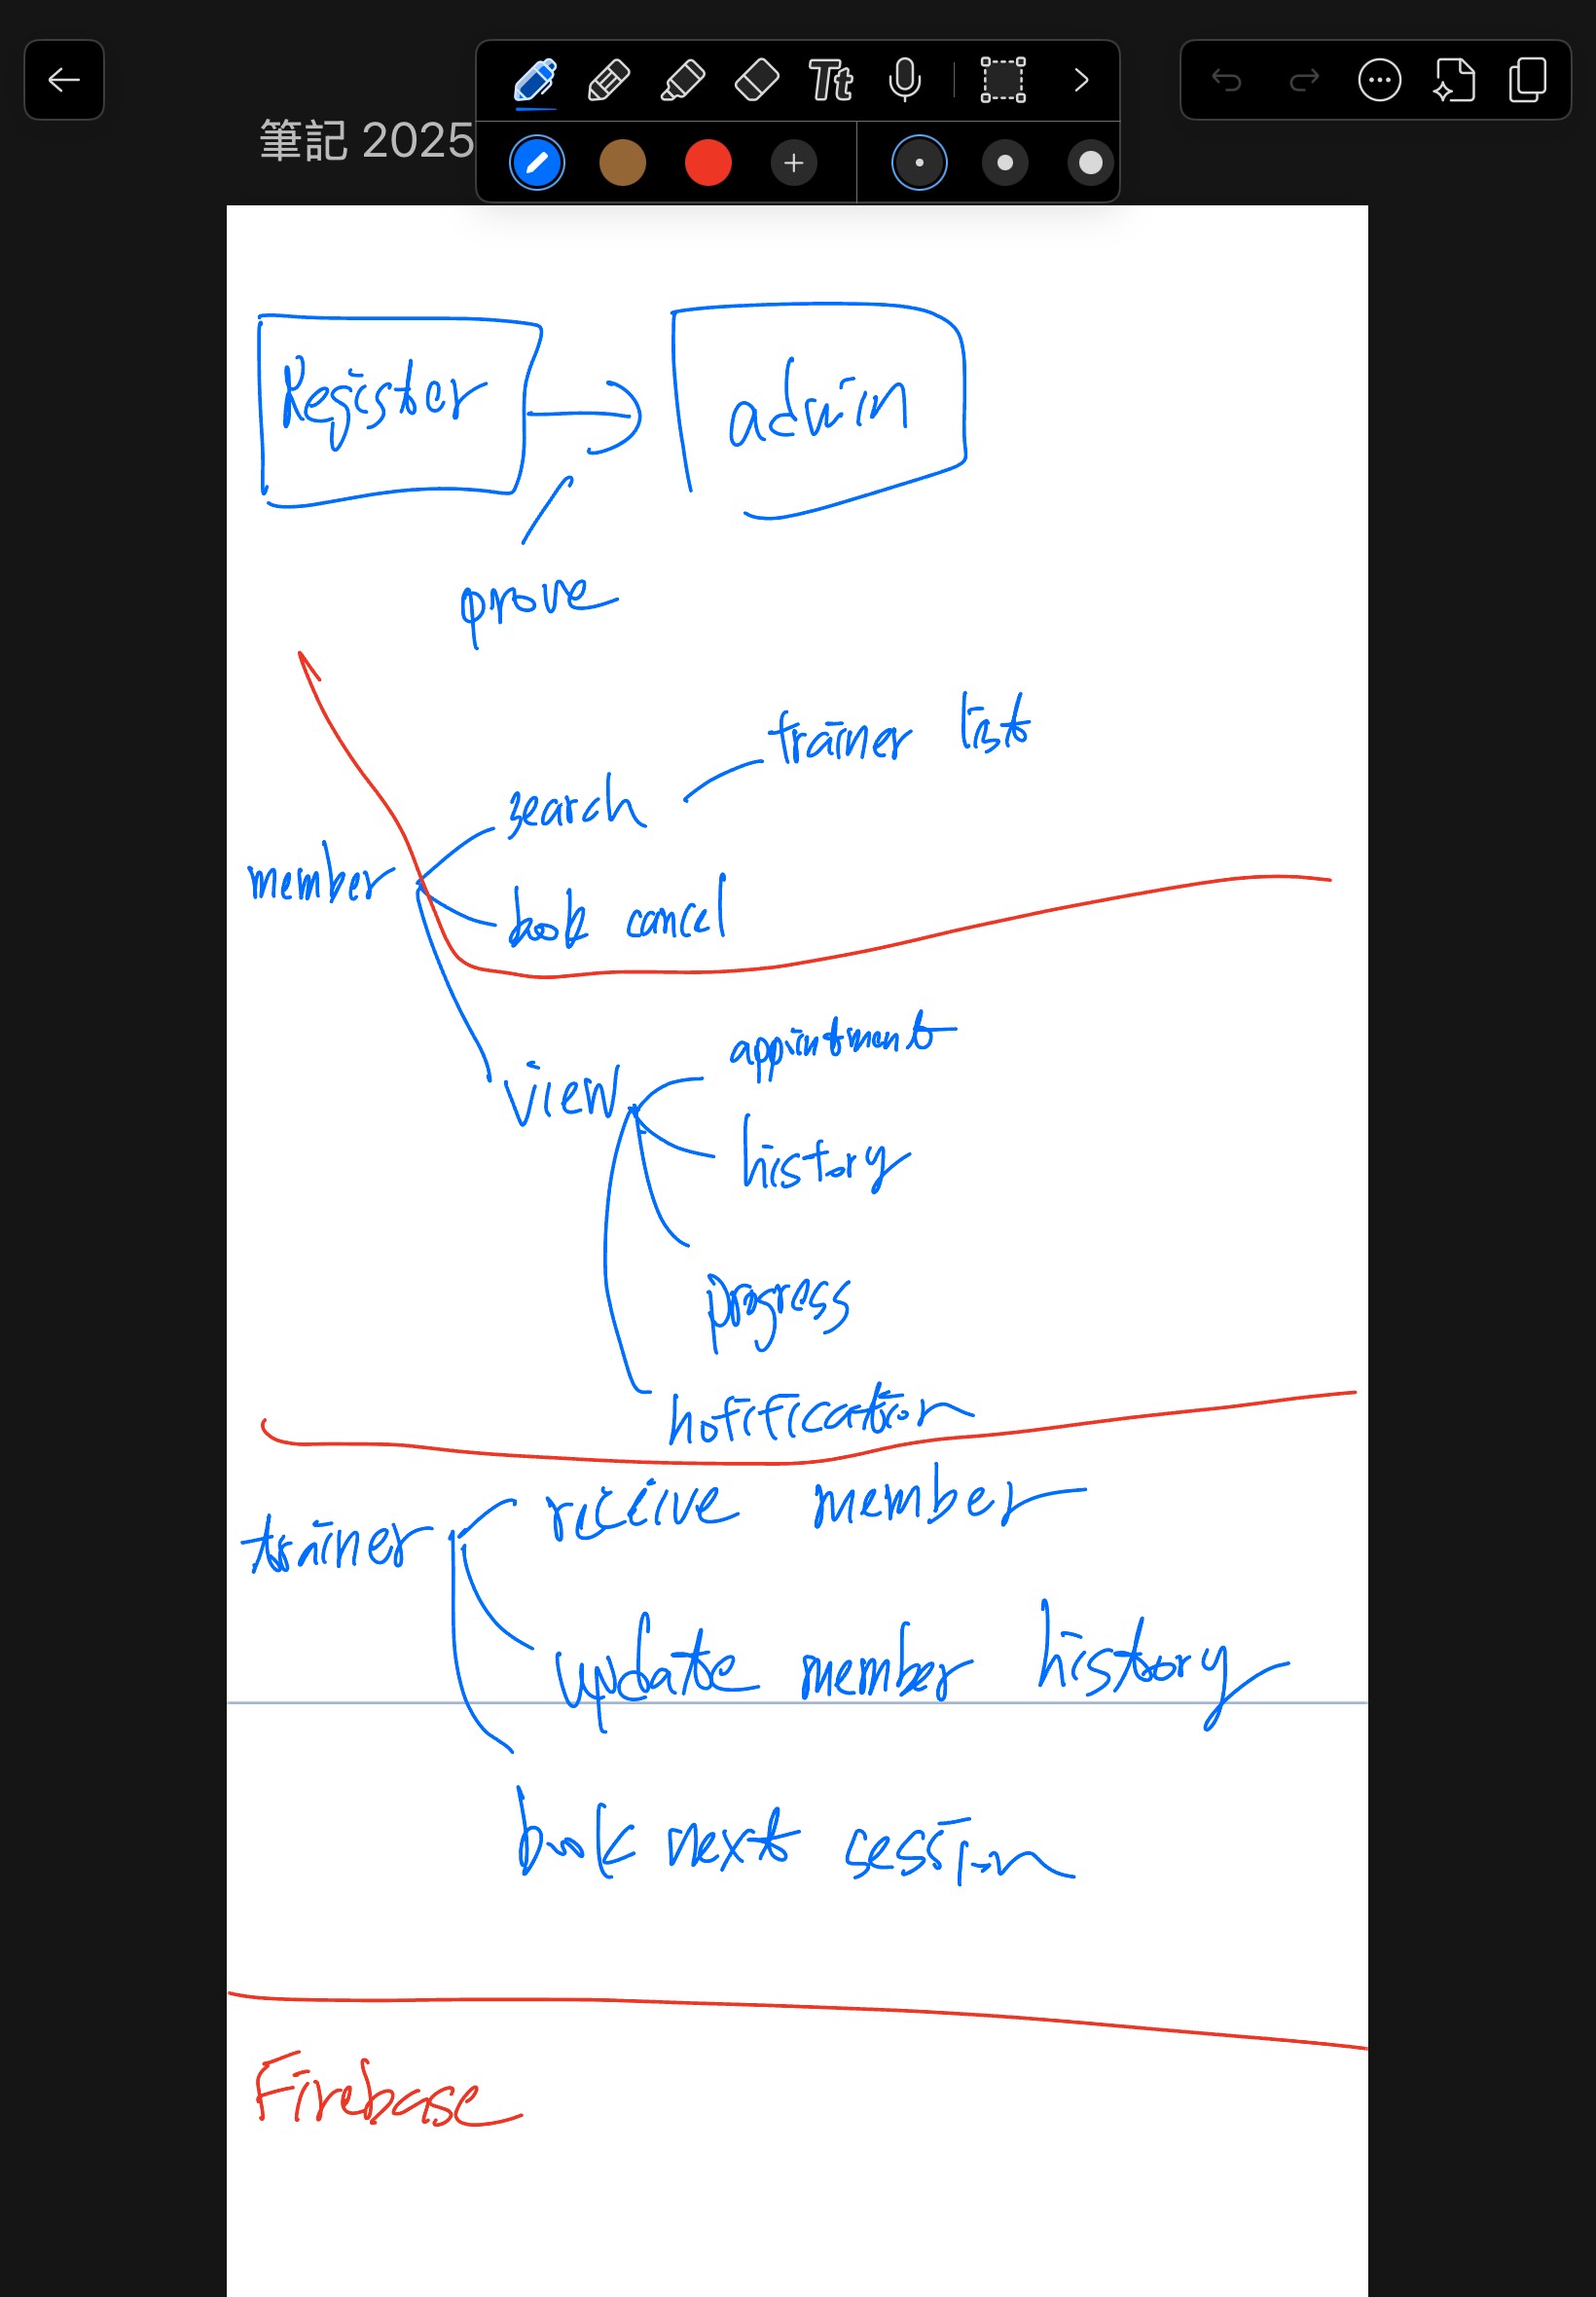 筆記 2025
Tt
Register
admin
prove
trainer list
search
member
book cancel
appointment
view
history
progress
notification
trainer
receive member
update member history
book next session
Firebase